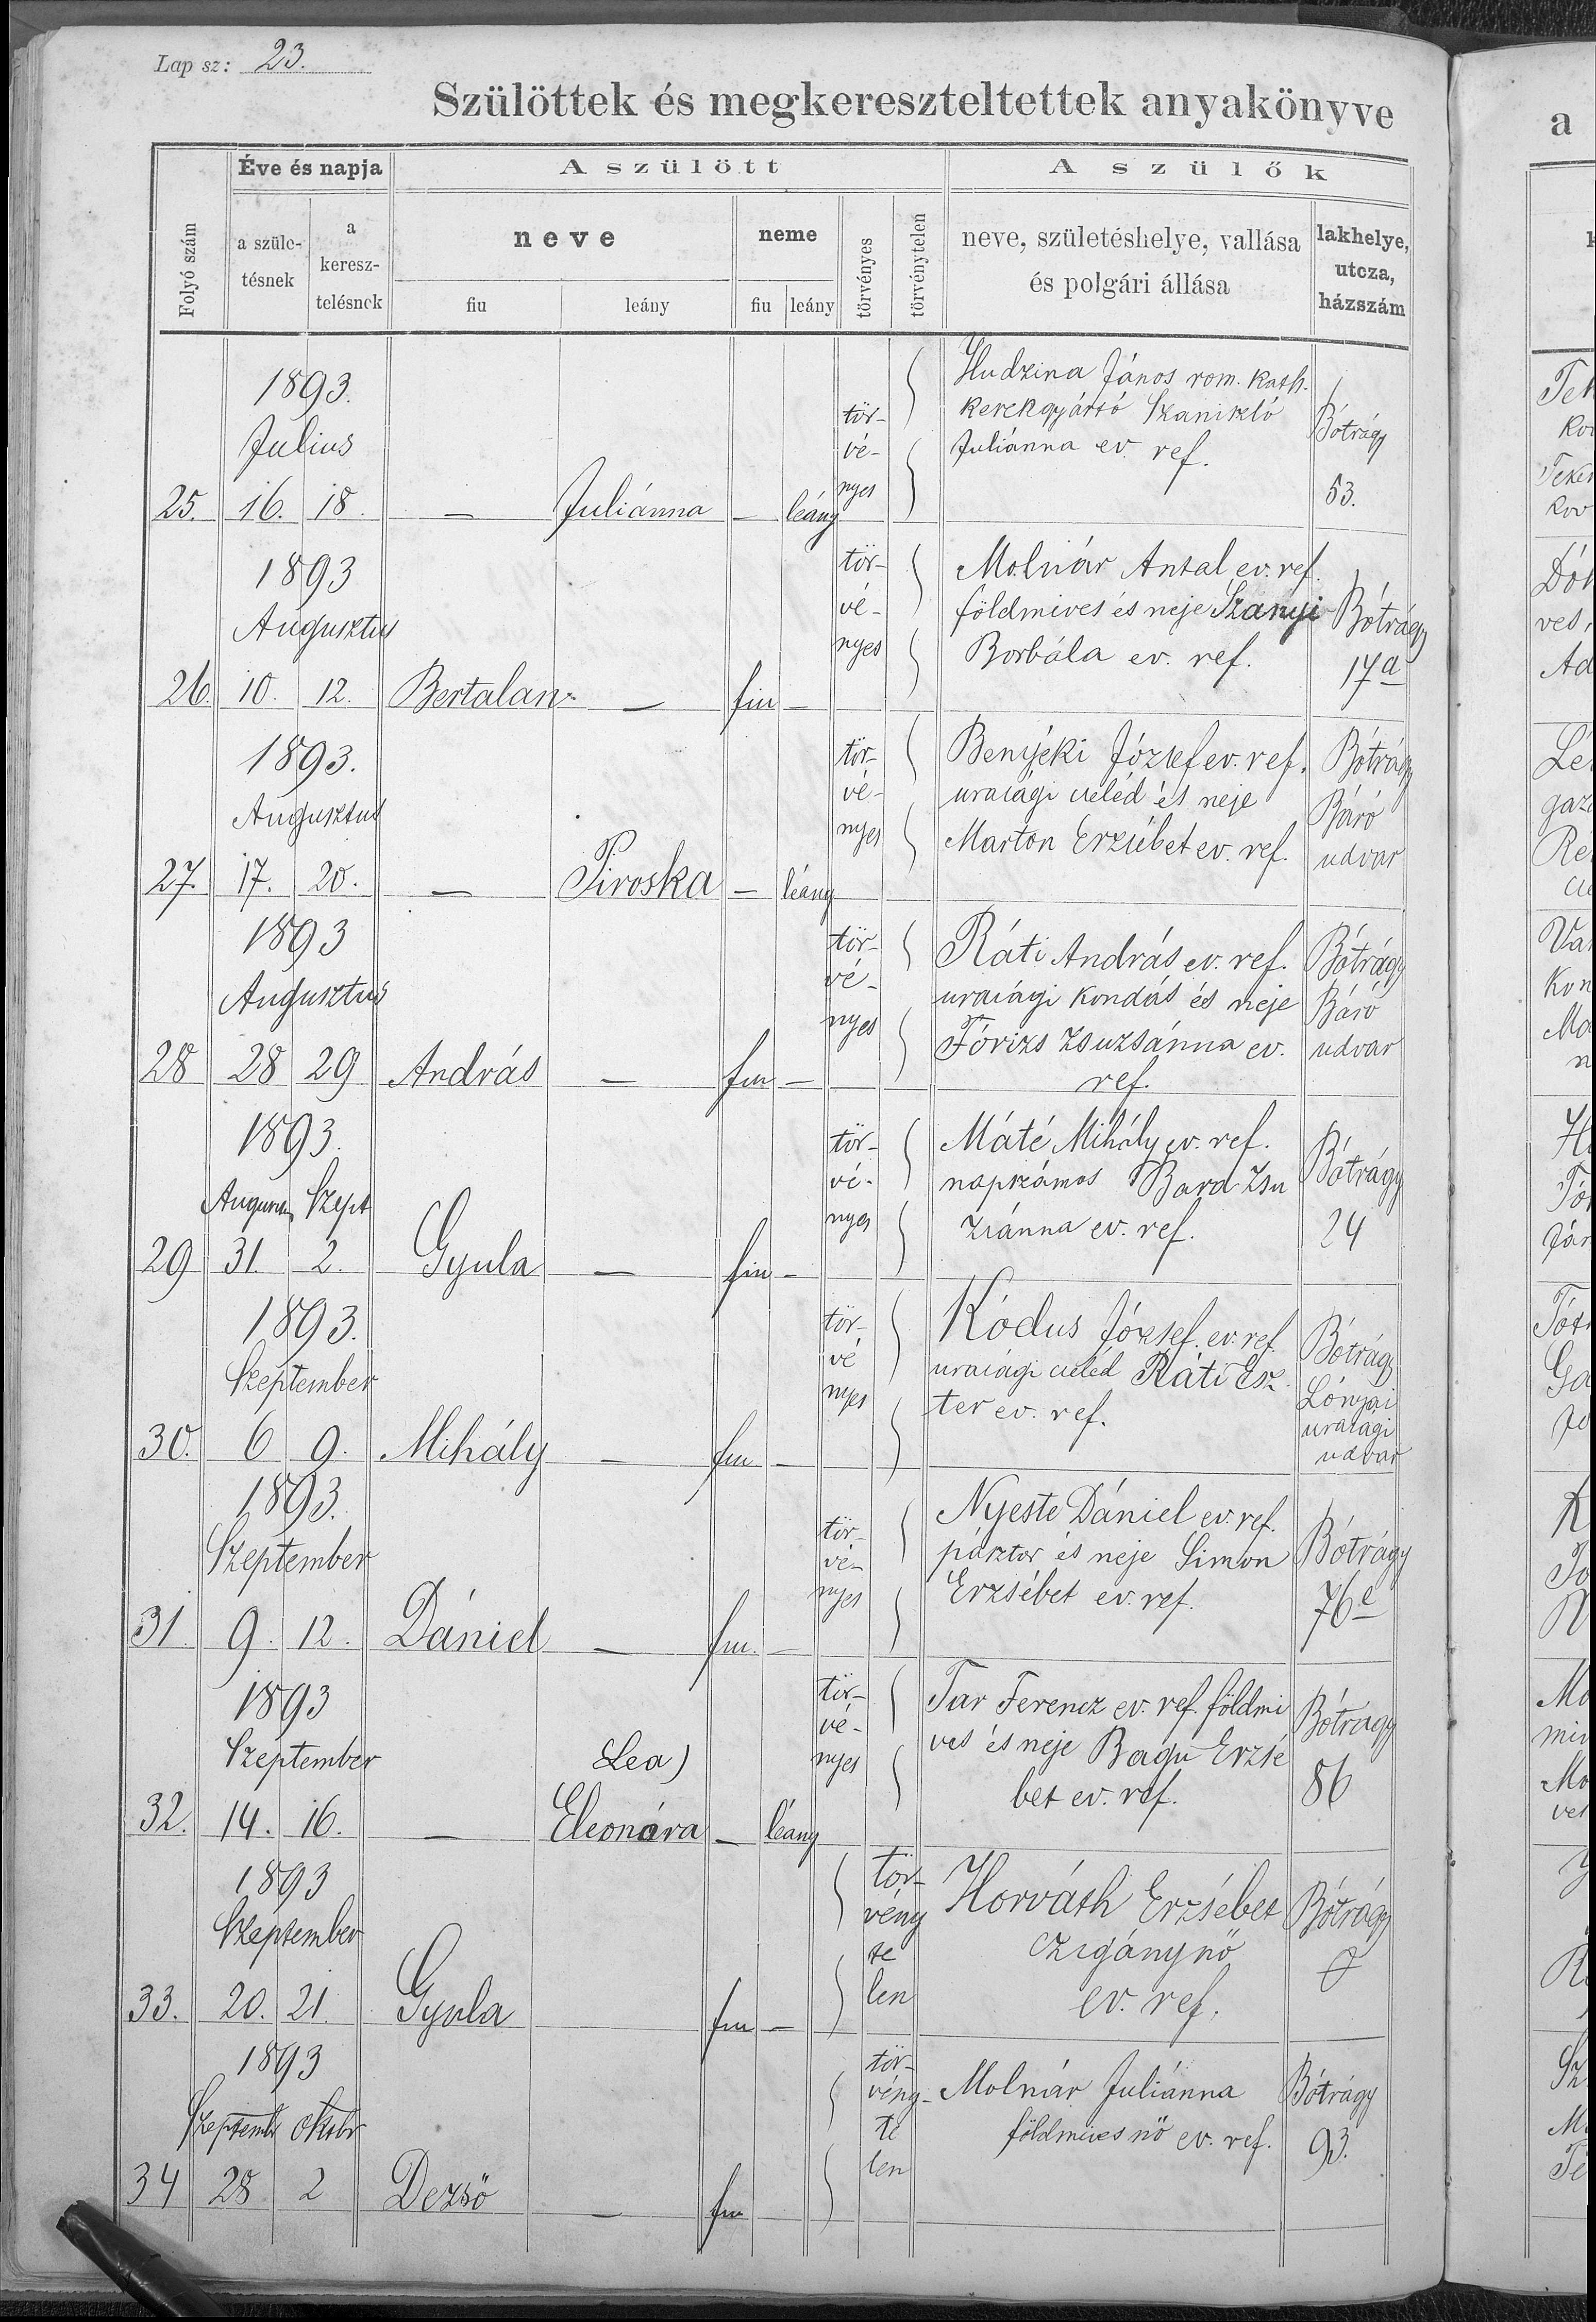 Lap sz: 23.
Szülöttek és megkereszteltettek anyakönyve
Folyó szám
Éve és napja
a szüle-
tésnek
a
keresz-
telésnek
A szülött
neve
fiu
leány
neme
fiu leány
törvényes
törvénytelen
A szülők
neve, születéshelye, vallása
és polgári állása
lakhelye,
utcza,
házszám
1893.
Julius
25. 16. 18. — Juliánna — leány
tör-
vé-
nyes
Hudzina János rom. kath.
kerekgyártó Szanikló
Juliánna ev. ref.
Bótrágy
53.
1893
Augusztus
26. 10. 12. Bertalan — fiu —
tör-
vé-
nyes
Molnár Antal ev. ref.
földmives és neje Szanyi
Borbála ev. ref.
Bótrágy
17a
1893.
Augusztus
27. 17. 20. — Piroska — leány
tör-
vé-
nyes
Benyéki József ev. ref.
urasági cseléd és neje
Marton Erzsébet ev. ref.
Bótrágy
Báró
udvar
1893
Augusztus
28 28 29 András — fiu —
tör-
vé-
nyes
Ráti András ev. ref.
urasági kondás és neje
Fórizs Zsuzsánna ev.
ref.
Bótrágy
Báró
udvar
1893.
Szept
29 31. 2. Gyula — fiu —
tör-
vé-
nyes
Máté Mihály ev. ref.
napszámos Bara Zsu
zsánna ev. ref.
Bótrágy
24
1893.
Szeptember
30. 6 9. Mihály — fiu —
tör-
vé
nyes
Kódus József ev. ref.
urasági cseléd Ráti Esz-
ter ev. ref.
Bótrágy
Lónyai
urasági
udvar
1893.
Szeptember
31 9. 12. Dániel — fiu. —
tör-
vé-
nyes
Nyeste Dániel ev. ref.
pásztor és neje Simon
Erzsébet ev. ref.
Bótrágy
76e
1893
Szeptember
(Lea)
32. 14. 16. — Eleonóra — leány
tör-
vé-
nyes
Tar Ferencz ev. ref. földmi
ves és neje Bagu Erzsé
bet ev. ref.
Bótrágy
86
1893
Szeptember
33. 20. 21. Gyula fiu —
tör-
vény
te
len
Horváth Erzsébet
czigánynő
ev. ref.
Bótrágy
1893
Septembr Oktobr
34 28 2 Dezső — fiu
tör-
vény-
te
len
Molnár Juliánna
földmives nő ev. ref.
Bótrágy
93.
a